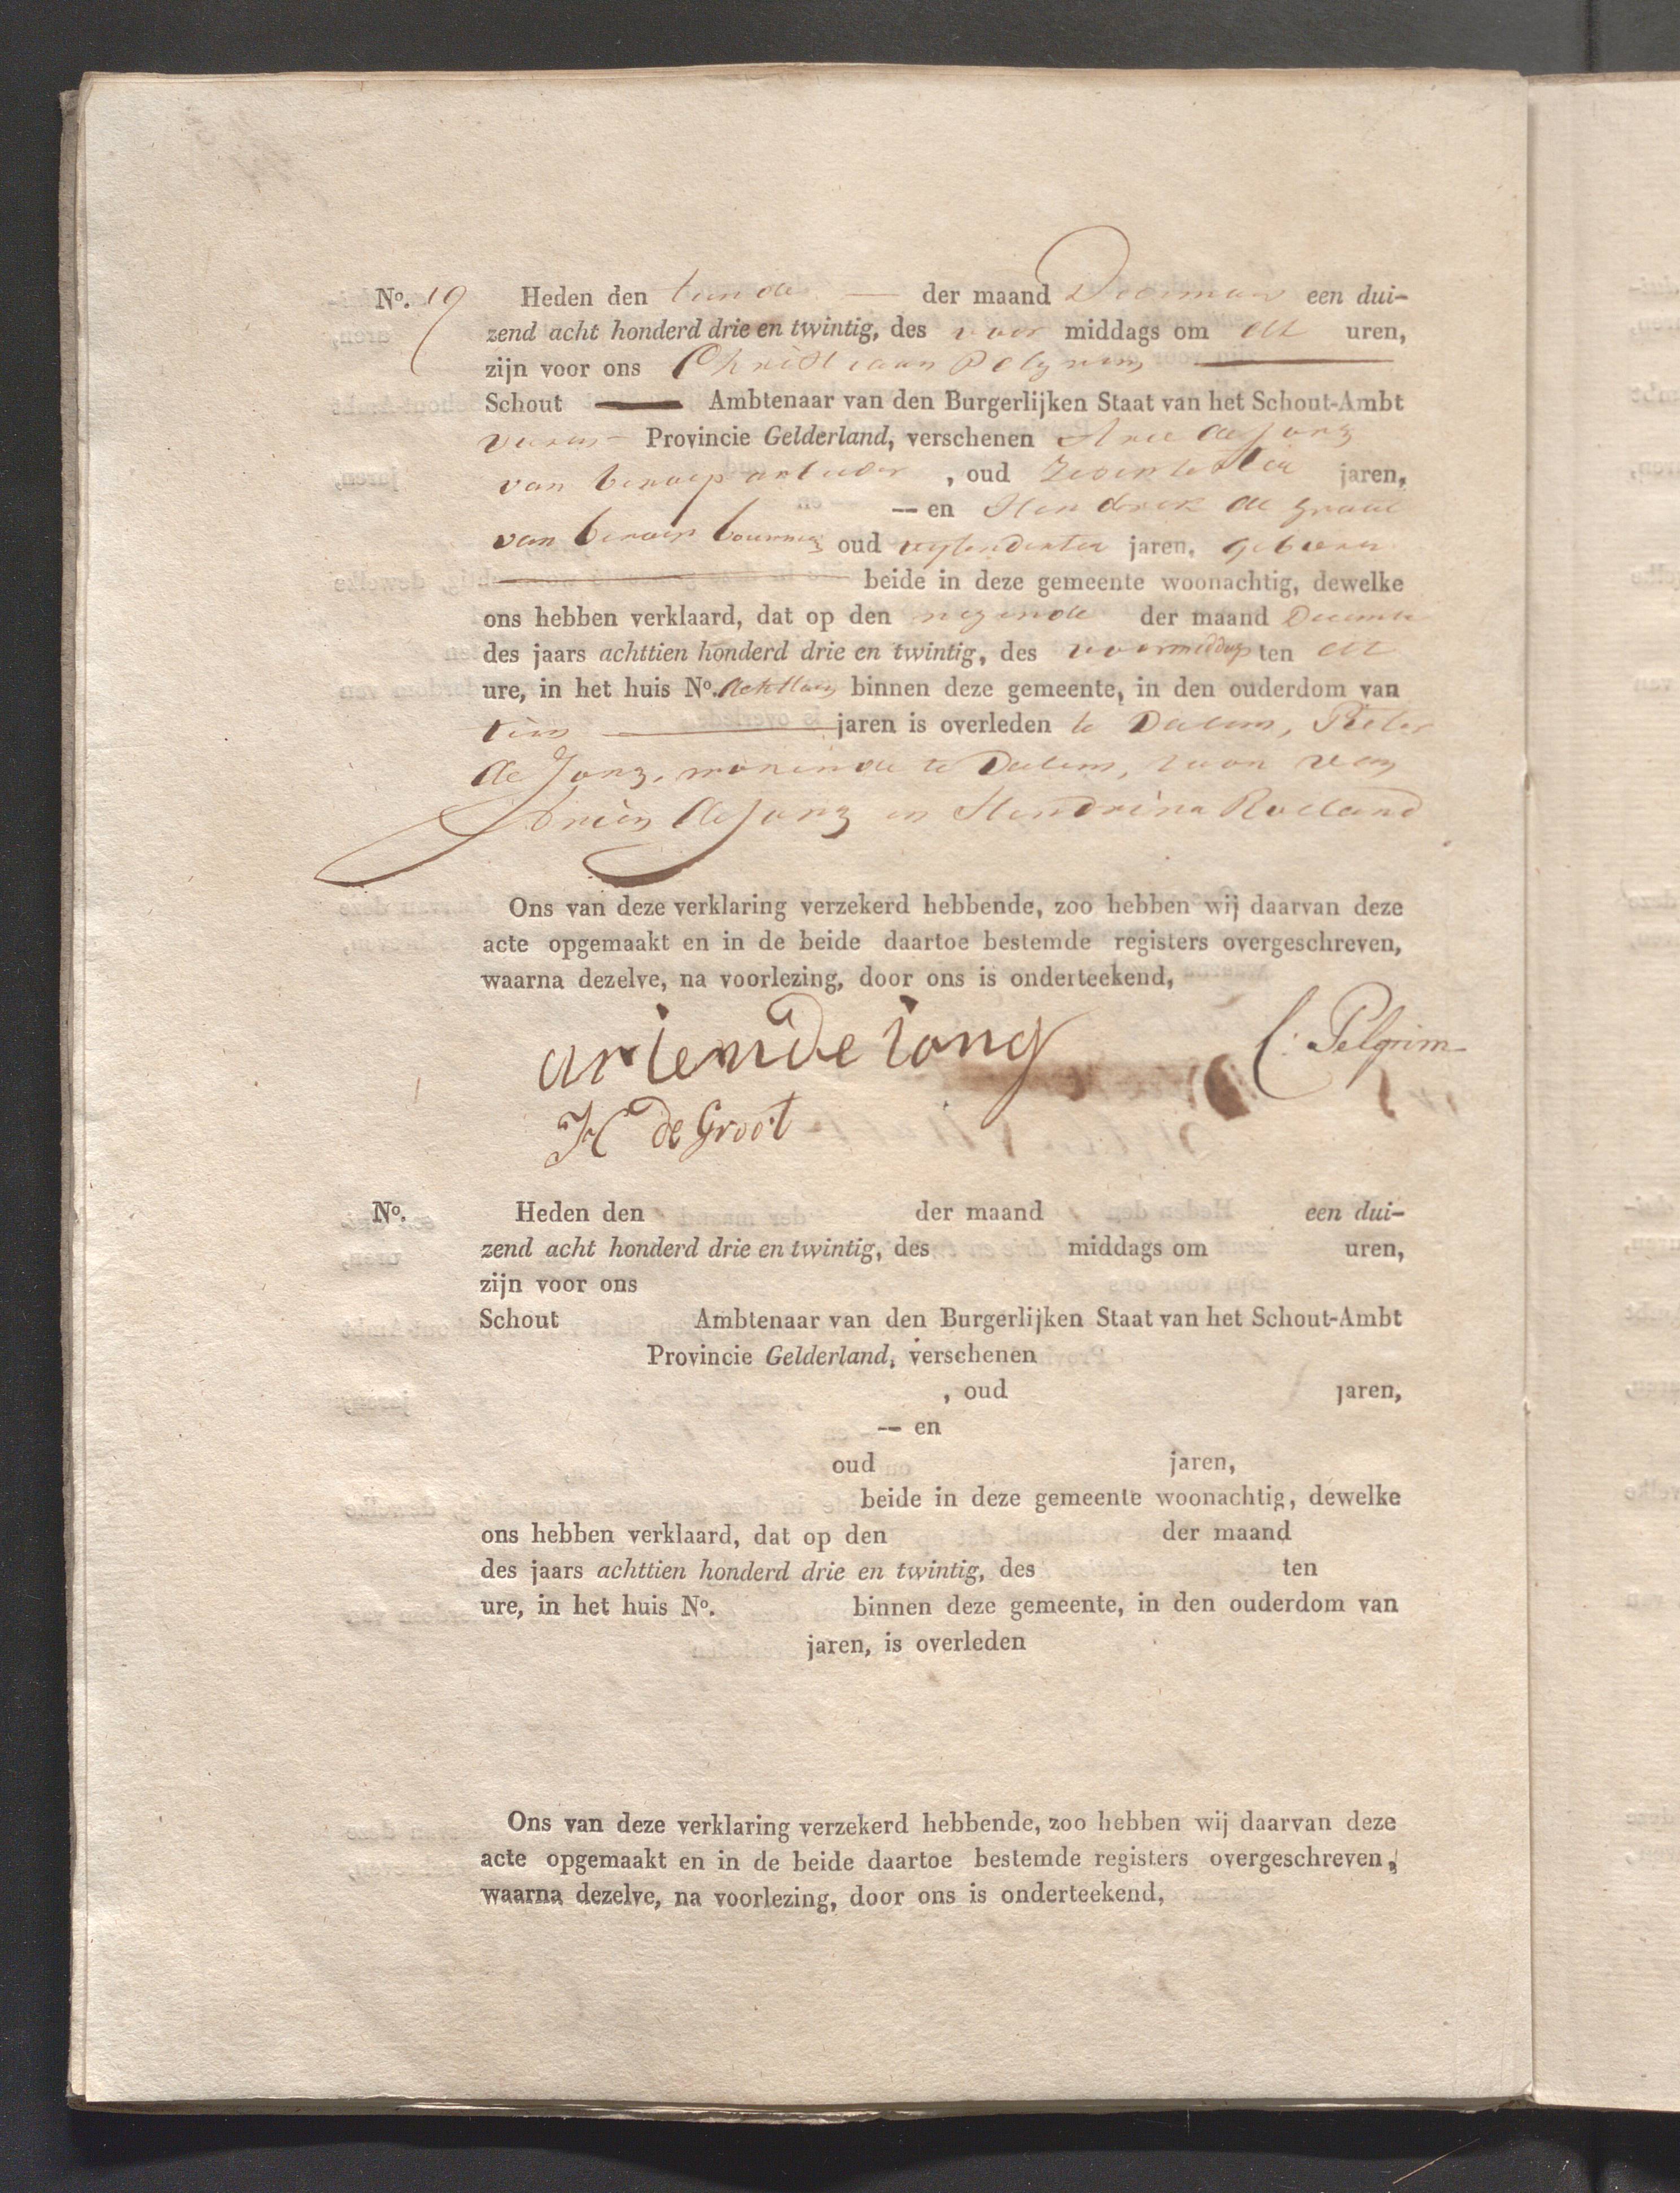 No. 19 Heden den tiende der maand December een dui-
zend acht honderd drie en twintig, des voor middags om elf uren,
zijn voor ons Christiaan Pelgrim
Schout Ambtenaar van den Burgerlijken Staat van het Schout-Ambt
Vuren Provincie Gelderland, verschenen Arie de Jong
van beroep arbeider, oud jaren,
-- en Hendrik de
van beroep bouwman oud jaren, geburen
beide in deze gemeente woonachtig, dewelke
ons hebben verklaard, dat op den negende der maand December
des jaars achttien honderd drie en twintig, des voormiddags ten elf
ure, in het huis No. binnen deze gemeente, in den ouderdom van
tien jaren is overleden te Dalem, Pieter
de Jong, wonende te Dalem, zoon van
de Jong en Hendrina Roeland
Ons van deze verklaring verzekerd hebbende, zoo hebben wij daarvan deze
acte opgemaakt en in de beide daartoe bestemde registers overgeschreven,
waarna dezelve, na voorlezing, door ons is onderteekend,
arien de iong C: Pelgrim
H de Groot
No. Heden den der maand een dui-
zend acht honderd drie en twintig, des middags om uren,
zijn voor ons
Schout Ambtenaar van den Burgerlijken Staat van het Schout-Ambt
Provincie Gelderland, verschenen
, oud jaren,
-- en
oud jaren,
beide in deze gemeente woonachtig, dewelke
ons hebben verklaard, dat op den der maand
des jaars achttien honderd drie en twintig, des ten
ure, in het huis No. binnen deze gemeente, in den ouderdom van
jaren, is overleden
Ons van deze verklaring verzekerd hebbende, zoo hebben wij daarvan deze
acte opgemaakt en in de beide daartoe bestemde registers overgeschreven,
waarna dezelve, na voorlezing, door ons is onderteekend,